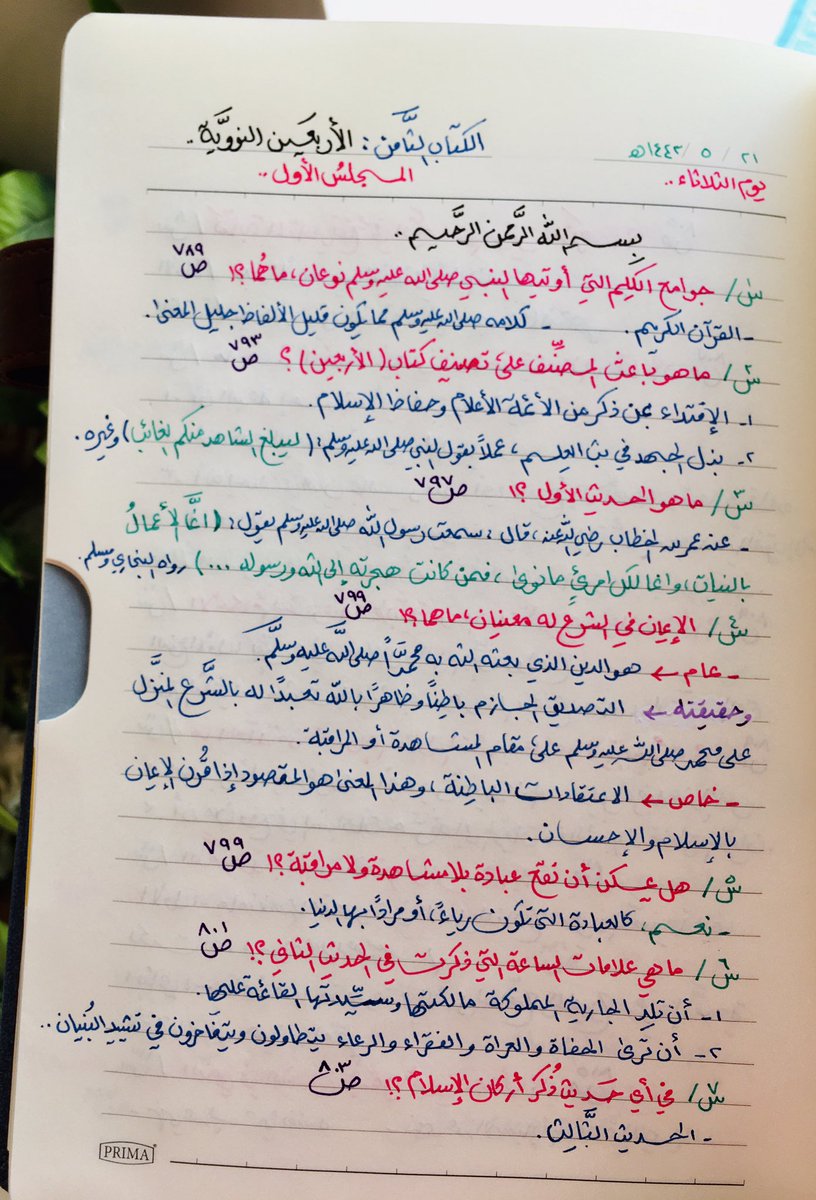 ٢١ / ٥ / ١٤٤٢هـ
الكتاب الثَّامن: الأربعين النوويَّة..
يوم الثلاثاء..
المجلسُ الأول..
بسم الله الرَّحمن الرَّحيم..
س/ جوامع الكَلِم التي أوتيها النبي صلى الله عليه وسلم نوعان، ماهُما؟! ص٧٨٩
- القرآن الكريم. - كلامه صلى الله عليه وسلم مما يكون قليل الألفاظ جليل المعنى.
س/ ما هو باعث المصنِّف على تصنيف كتاب (الأربعين)؟ ص٧٩٣
١- الإقتداء بمن ذكر عن الأئمة الأعلام وحفاظ الإسلام.
٢- بذل الجهد في بث العِلم، عملاً بقول النبي صلى الله عليه وسلم: (ليبلغ الشاهد منكم الغائب) وغيره.
س/ ماهو الحديث الأول؟! ص٧٩٧
- عن عمر بن الخطاب رضي الله عنه، قال: سمعت رسول الله صلى الله عليه وسلم يقول: (انَّما الأعمالُ
بالنيات، وانما لكل امرئٍ مانوى، فمن كانت هجرته إلى الله ورسوله ...) رواه البخاري ومسلم.
س/ الإيمان في الشرع له معنيان، ماهما؟! ص٧٩٩
- عام ← هو الدين الذي بعثه الله به محمدًا صلى الله عليه وسلَّم.
وحقيقته ← التصديق الجازم باطِنًا وظاهرًا بالله تعبدًا له بالشَّرع المنَزَّل
على محمد صلى الله عليه وسلم على مقام المشاهدة أو المراقبة.
- خاص ← الاعتقادات الباطِنة، وهذا المعنى هو المقصود إذا قُرن الإيمان
بالإسلام والإحسان.
س/ هل يمكن أن تقع عبادة بلا مشاهدة ولا مراقبة؟! ص٧٩٩
- نعم، كالعبادة التي تكون رياءً، أو مرادًا بها الدنيا.
س/ ماهي علامات الساعة التي ذكرت في الحديث الثاني؟! ص٨٠١
١- أن تلِد الجارية المملوكة مالكتها وسيِّدتها القائمة عليها.
٢- أن ترى الحفاة والعراة والفقراء والرعاء يتطاولون ويتفاخرون في تشييد البُنيان..
س/ في أي حَديث ذُكر أركان الإسلام؟! ص٨٠٣
- الحديث الثَّالِث.
PRIMA